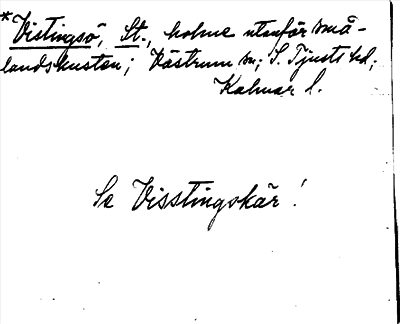 *Vistingsö, St., holme utanför små-
landskusten; Västrum sn; S. Tjusts hd;
Kalmar l.
Se Visstingskär!